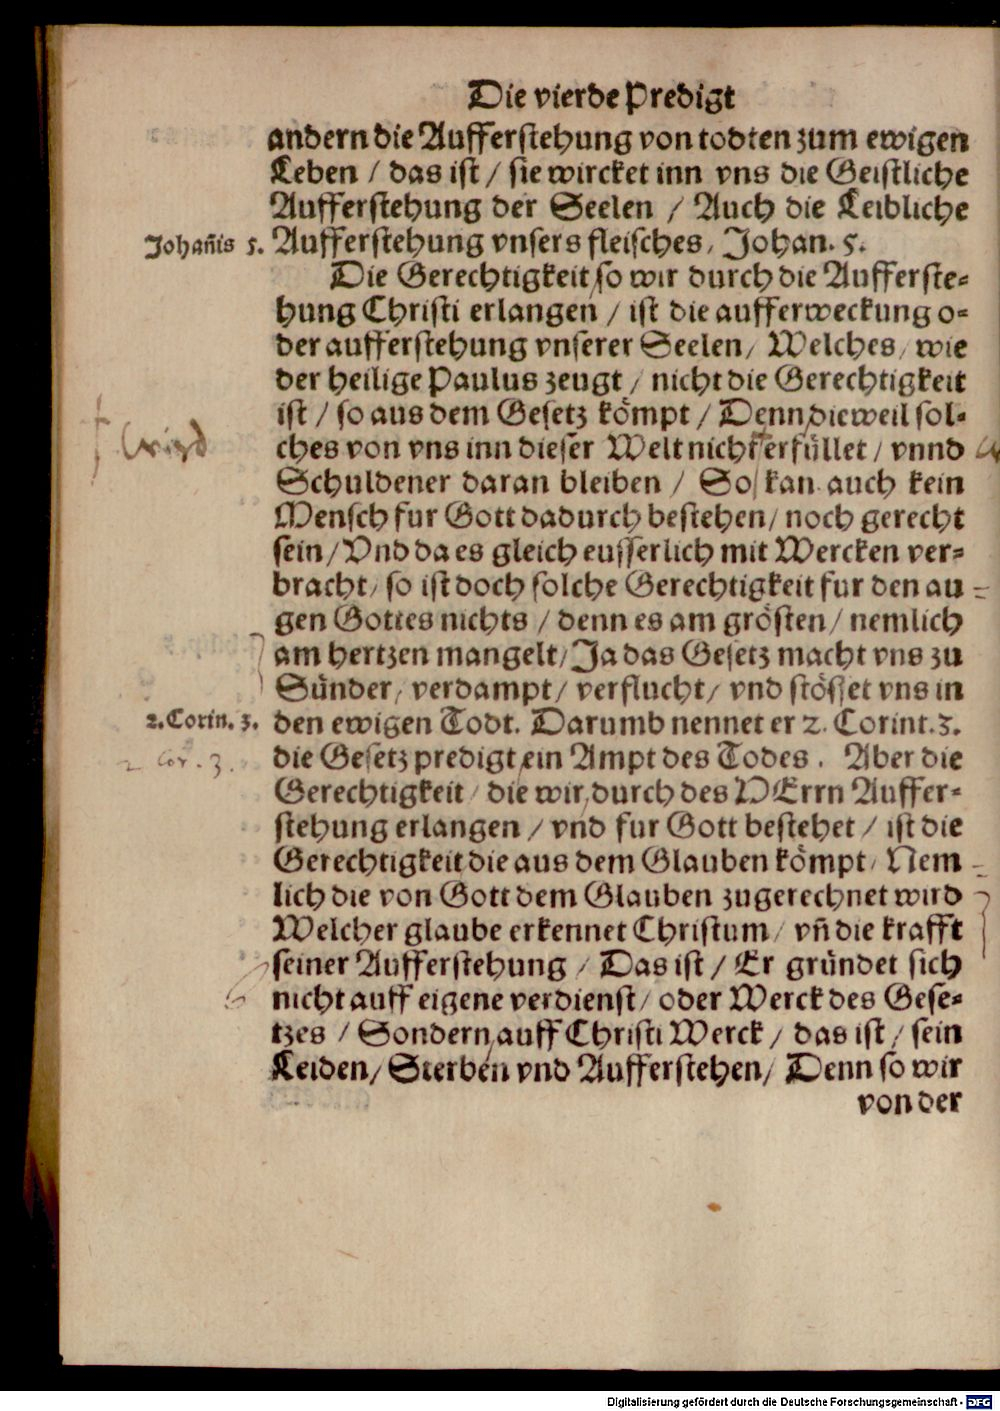 Die vierde Predigt
andern die Aufferstehung von todten zum ewigen
Leben / das ist / sie wircket inn vns die Geistliche
Aufferstehung der Seelen / Auch die Leibliche
Johañis 5. Aufferstehung vnsers fleisches / Johan. 5.
Die Gerechtigkeit so wir durch die Aufferste-
hung Christi erlangen / ist die aufferweckung o-
der aufferstehung vnserer Seelen / Welches / wie
der heilige Paulus zeugt / nicht die Gerechtigkeit
ist / so aus dem Gesetz kömpt / Denn dieweil sol-
† wird
ches von vns inn dieser Welt nicht erfüllet / vnnd
Schuldener daran bleiben / So kan auch kein
Mensch fur Gott dadurch bestehen / noch gerecht
sein / Vnd da es gleich eusserlich mit Wercken ver-
bracht / so ist doch solche Gerechtigkeit fur den au-
gen Gottes nichts / denn es am grösten / nemlich
am hertzen mangelt / Ja das Gesetz macht vns zu
Sünder / verdampt / verflucht / vnd stösset vns in
2. Corin. 3. den ewigen Todt. Darumb nennet er 2. Corint. 3.
2 Cor. 3.
die Gesetz predigt ein Ampt des Todes. Aber die
Gerechtigkeit / die wir durch des HErrn Auffer-
stehung erlangen / vnd fur Gott bestehet / ist die
Gerechtigkeit die aus dem Glauben kömpt / Nem
lich die von Gott dem Glauben zugerechnet wird
Welcher glaube erkennet Christum / vñ die krafft
seiner Aufferstehung / Das ist / Er gründet sich
nicht auff eigene verdienst / oder Werck des Gese-
tzes / Sondern auff Christi Werck / das ist / sein
Leiden / Sterben vnd Aufferstehen / Denn so wir
von der
Digitalisierung gefördert durch die Deutsche Forschungsgemeinschaft - DFG